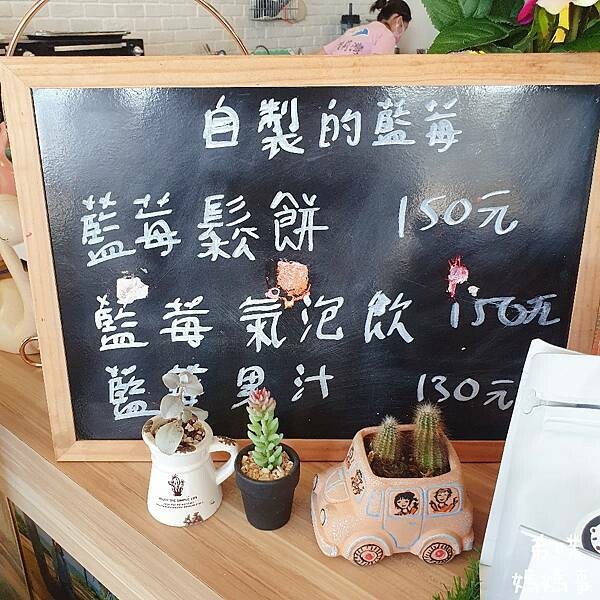 自製的藍莓
藍莓鬆餅 150元
藍莓氣泡飲 150元
藍莓果汁 130元
ENJOY THE SIMPLE LIFE
媽媽事